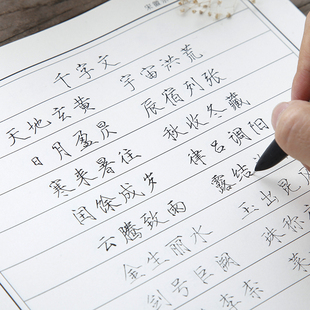 千字文
天地玄黄 宇宙洪荒
日月盈昃 辰宿列张
寒来暑往 秋收冬藏
闰馀成岁 律吕调阳
云腾致雨 露结
金生丽水 玉出昆冈
剑号巨阙 珠称
李柰 菜